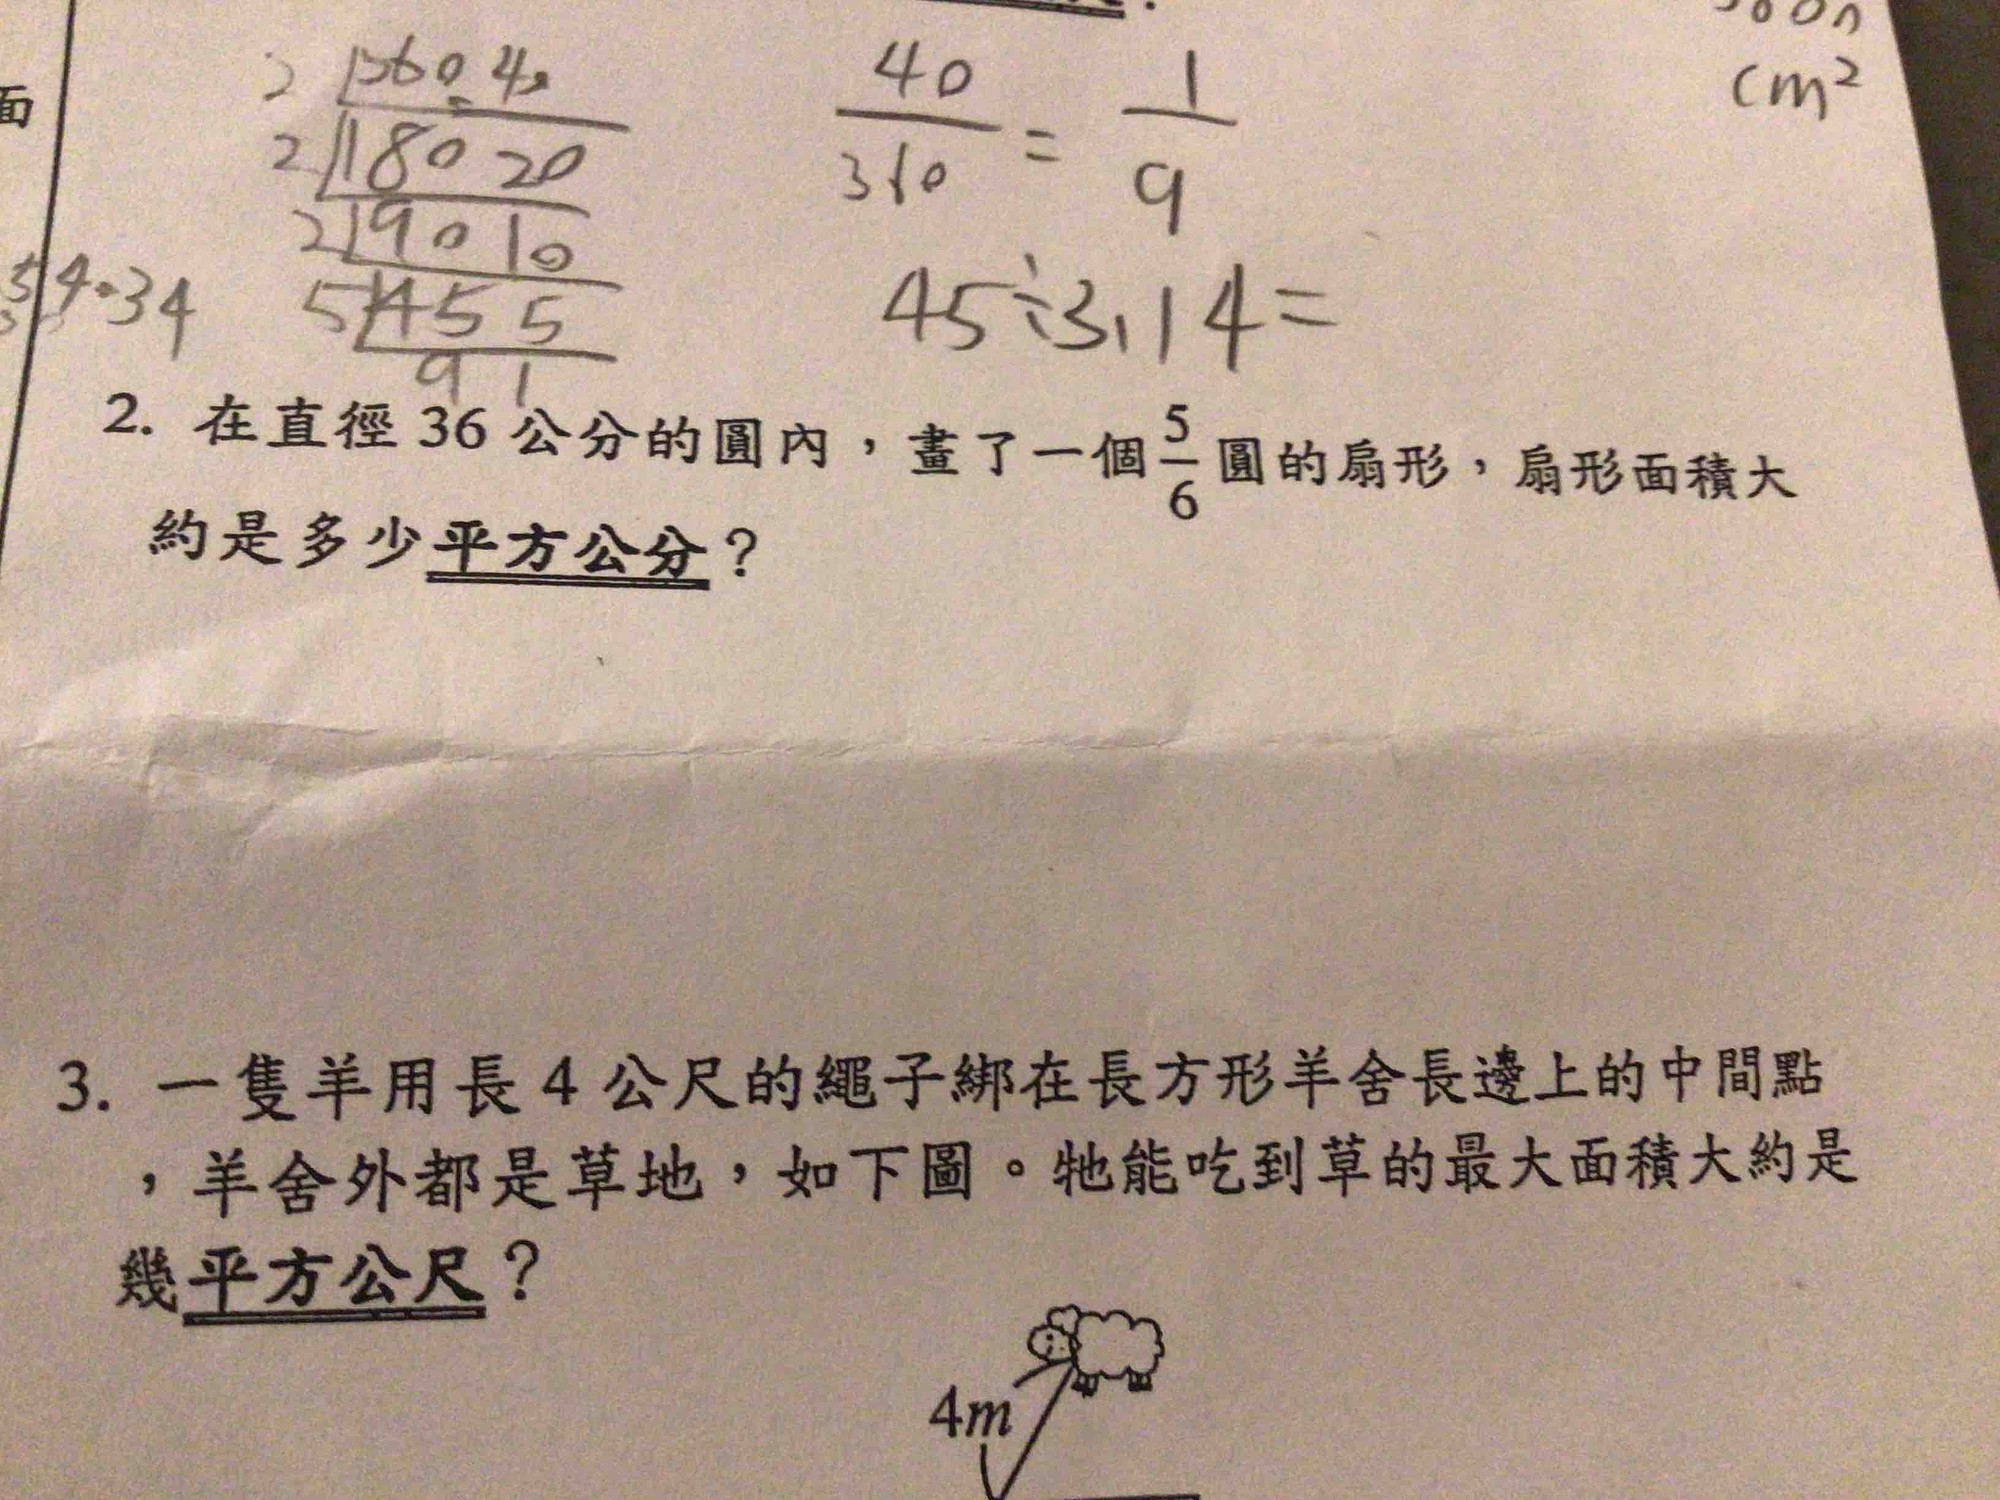 面
cm²
2 360 40
2 180 20
2 90 10
5 45 5
9 1
40/360 = 1/9
45÷3.14=
54.34
2. 在直徑 36 公分的圓內，畫了一個 5/6 圓的扇形，扇形面積大
約是多少平方公分？
3. 一隻羊用長 4 公尺的繩子綁在長方形羊舍長邊上的中間點
，羊舍外都是草地，如下圖。牠能吃到草的最大面積大約是
幾平方公尺？
4m